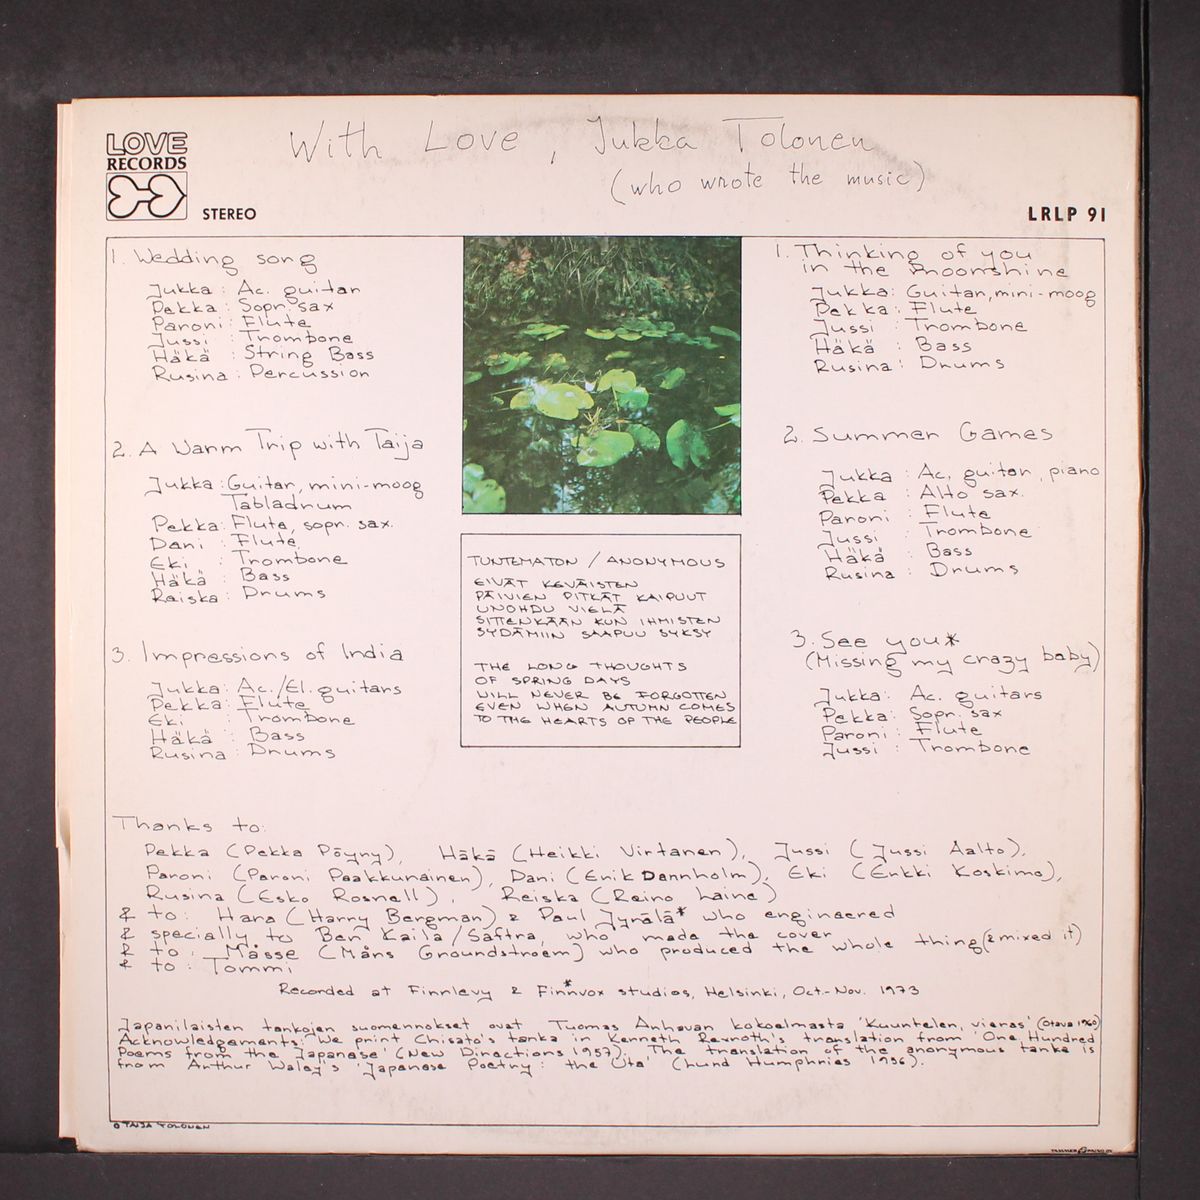 LOVE
RECORDS
STEREO
With Love, Jukka Tolonen
(who wrote the music)
LRLP 91
1. Wedding song
Jukka: Ac. guitar
Pekka: Sopr. sax
Paroni: Flute
Jussi : Trombone
Häkä : String Bass
Rusina: Percussion
2. A Warm Trip with Taija
Jukka: Guitar, mini-moog
Tabladrum
Pekka: Flute, sopr. sax.
Dani : Flute
Eki : Trombone
Häkä : Bass
Reiska: Drums
3. Impressions of India
Jukka: Ac./El. guitars
Pekka: Flute
Eki : Trombone
Häkä : Bass
Rusina: Drums
TUNTEMATON / ANONYMOUS
EIVÄT KEVÄISTEN
PÄIVIEN PITKÄT KAIPUUT
UNOHDU VIELÄ
SITTENKÄÄN KUN IHMISTEN
SYDÄMIIN SAAPUU SYKSY
THE LONG THOUGHTS
OF SPRING DAYS
WILL NEVER BE FORGOTTEN
EVEN WHEN AUTUMN COMES
TO THE HEARTS OF THE PEOPLE
1. Thinking of you
in the moonshine
Jukka: Guitar, mini-moog
Pekka: Flute
Jussi : Trombone
Häkä : Bass
Rusina: Drums
2. Summer Games
Jukka : Ac. guitar, piano
Pekka : Alto sax.
Paroni : Flute
Jussi : Trombone
Häkä : Bass
Rusina : Drums
3. See you*
(Missing my crazy baby)
Jukka: Ac. guitars
Pekka: Sopr. sax
Paroni: Flute
Jussi : Trombone
Thanks to:
Pekka (Pekka Pöyry), Häkä (Heikki Virtanen), Jussi (Jussi Aalto),
Paroni (Paroni Paakkunainen), Dani (Erik Dannholm), Eki (Erkki Koskimo),
Rusina (Esko Rosnell), Reiska (Reino Laine)
& to: Hara (Harry Bergman) & Paul Jyrälä* who engineered
& specially to Ben Kaila/Säftra, who made the cover
& to: Måsse (Måns Groundstroem) who produced the whole thing (& mixed it)
& to: Tommi
Recorded at Finnlevy & Finnvox* studios, Helsinki, Oct.-Nov. 1973
Japanilaisten tankojen suomennokset ovat Tuomas Anhavan kokoelmasta 'Kuuntelen, vieras' (Otava 1960)
Acknowledgements: We print Chisato's tanka in Kenneth Rexroth's translation from 'One Hundred
Poems from the Japanese' (New Directions 1957). The translation of the anonymous tanka is
from Arthur Waley's 'Japanese Poetry: the Uta' (Lund Humphries 1956).
© TAIJA TOLONEN